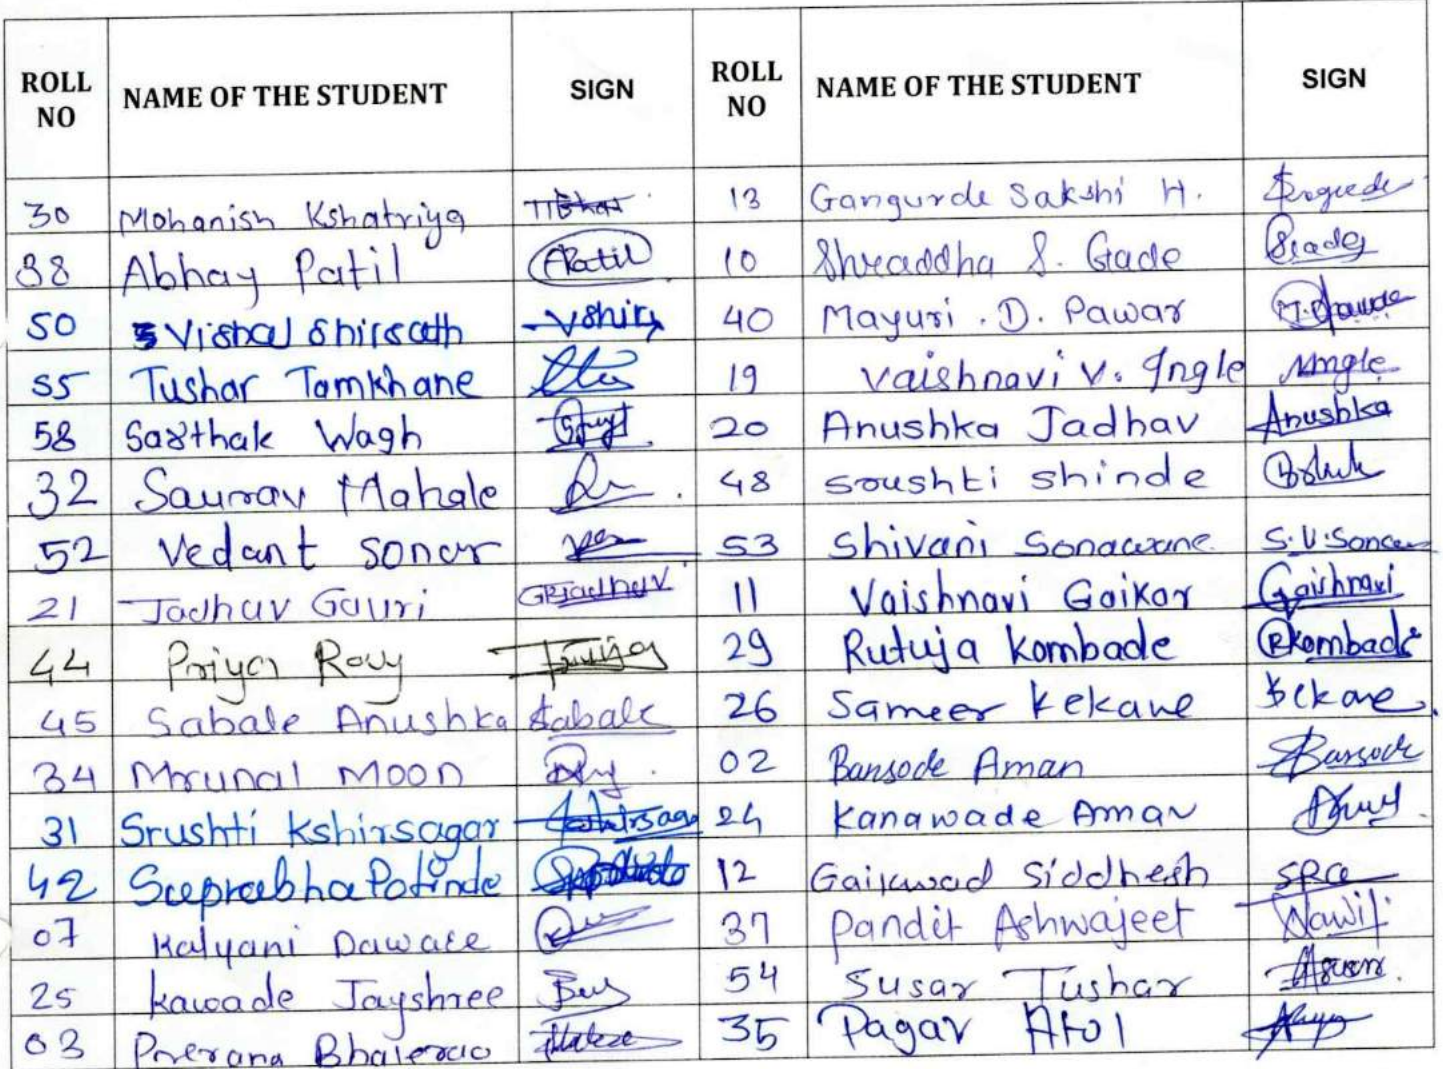 ROLL NO NAME OF THE STUDENT SIGN ROLL NO NAME OF THE STUDENT SIGN
30 Mohanish Kshatriya 13 Gangurde Sakshi H.
38 Abhay Patil APatil 10 Shraddha S. Gade SGade
50 Vishal Shirsath vshir 40 Mayuri . D. Pawar
55 Tushar Tamkhane 19 Vaishnavi V. Ingle VIngle
58 Sarthak Wagh 20 Anushka Jadhav Anushka
32 Saurav Mahale 48 Srushti Shinde
52 Vedant Sonar 53 Shivani Sonawane S.V.Sonaw
21 Jadhav Gauri GRJadhav 11 Vaishnavi Gaikar Gaishnavi
44 Priya Roy 29 Rutuja Kombade RKombade
45 Sabale Anushka Sabale 26 Sameer Kekane Kekane
34 Mrunal Moon 02 Bansode Aman Bansode
31 Srushti Kshirsagar Kshirsaga 24 Kanawade Aman
42 Suprabha Potinde 12 Gaikwad Siddhesh
07 Kalyani Daware 37 Pandit Ashwajeet
25 Kawade Jayshree 54 Susar Tushar
03 Prerana Bhalerao 35 Pagar Atul